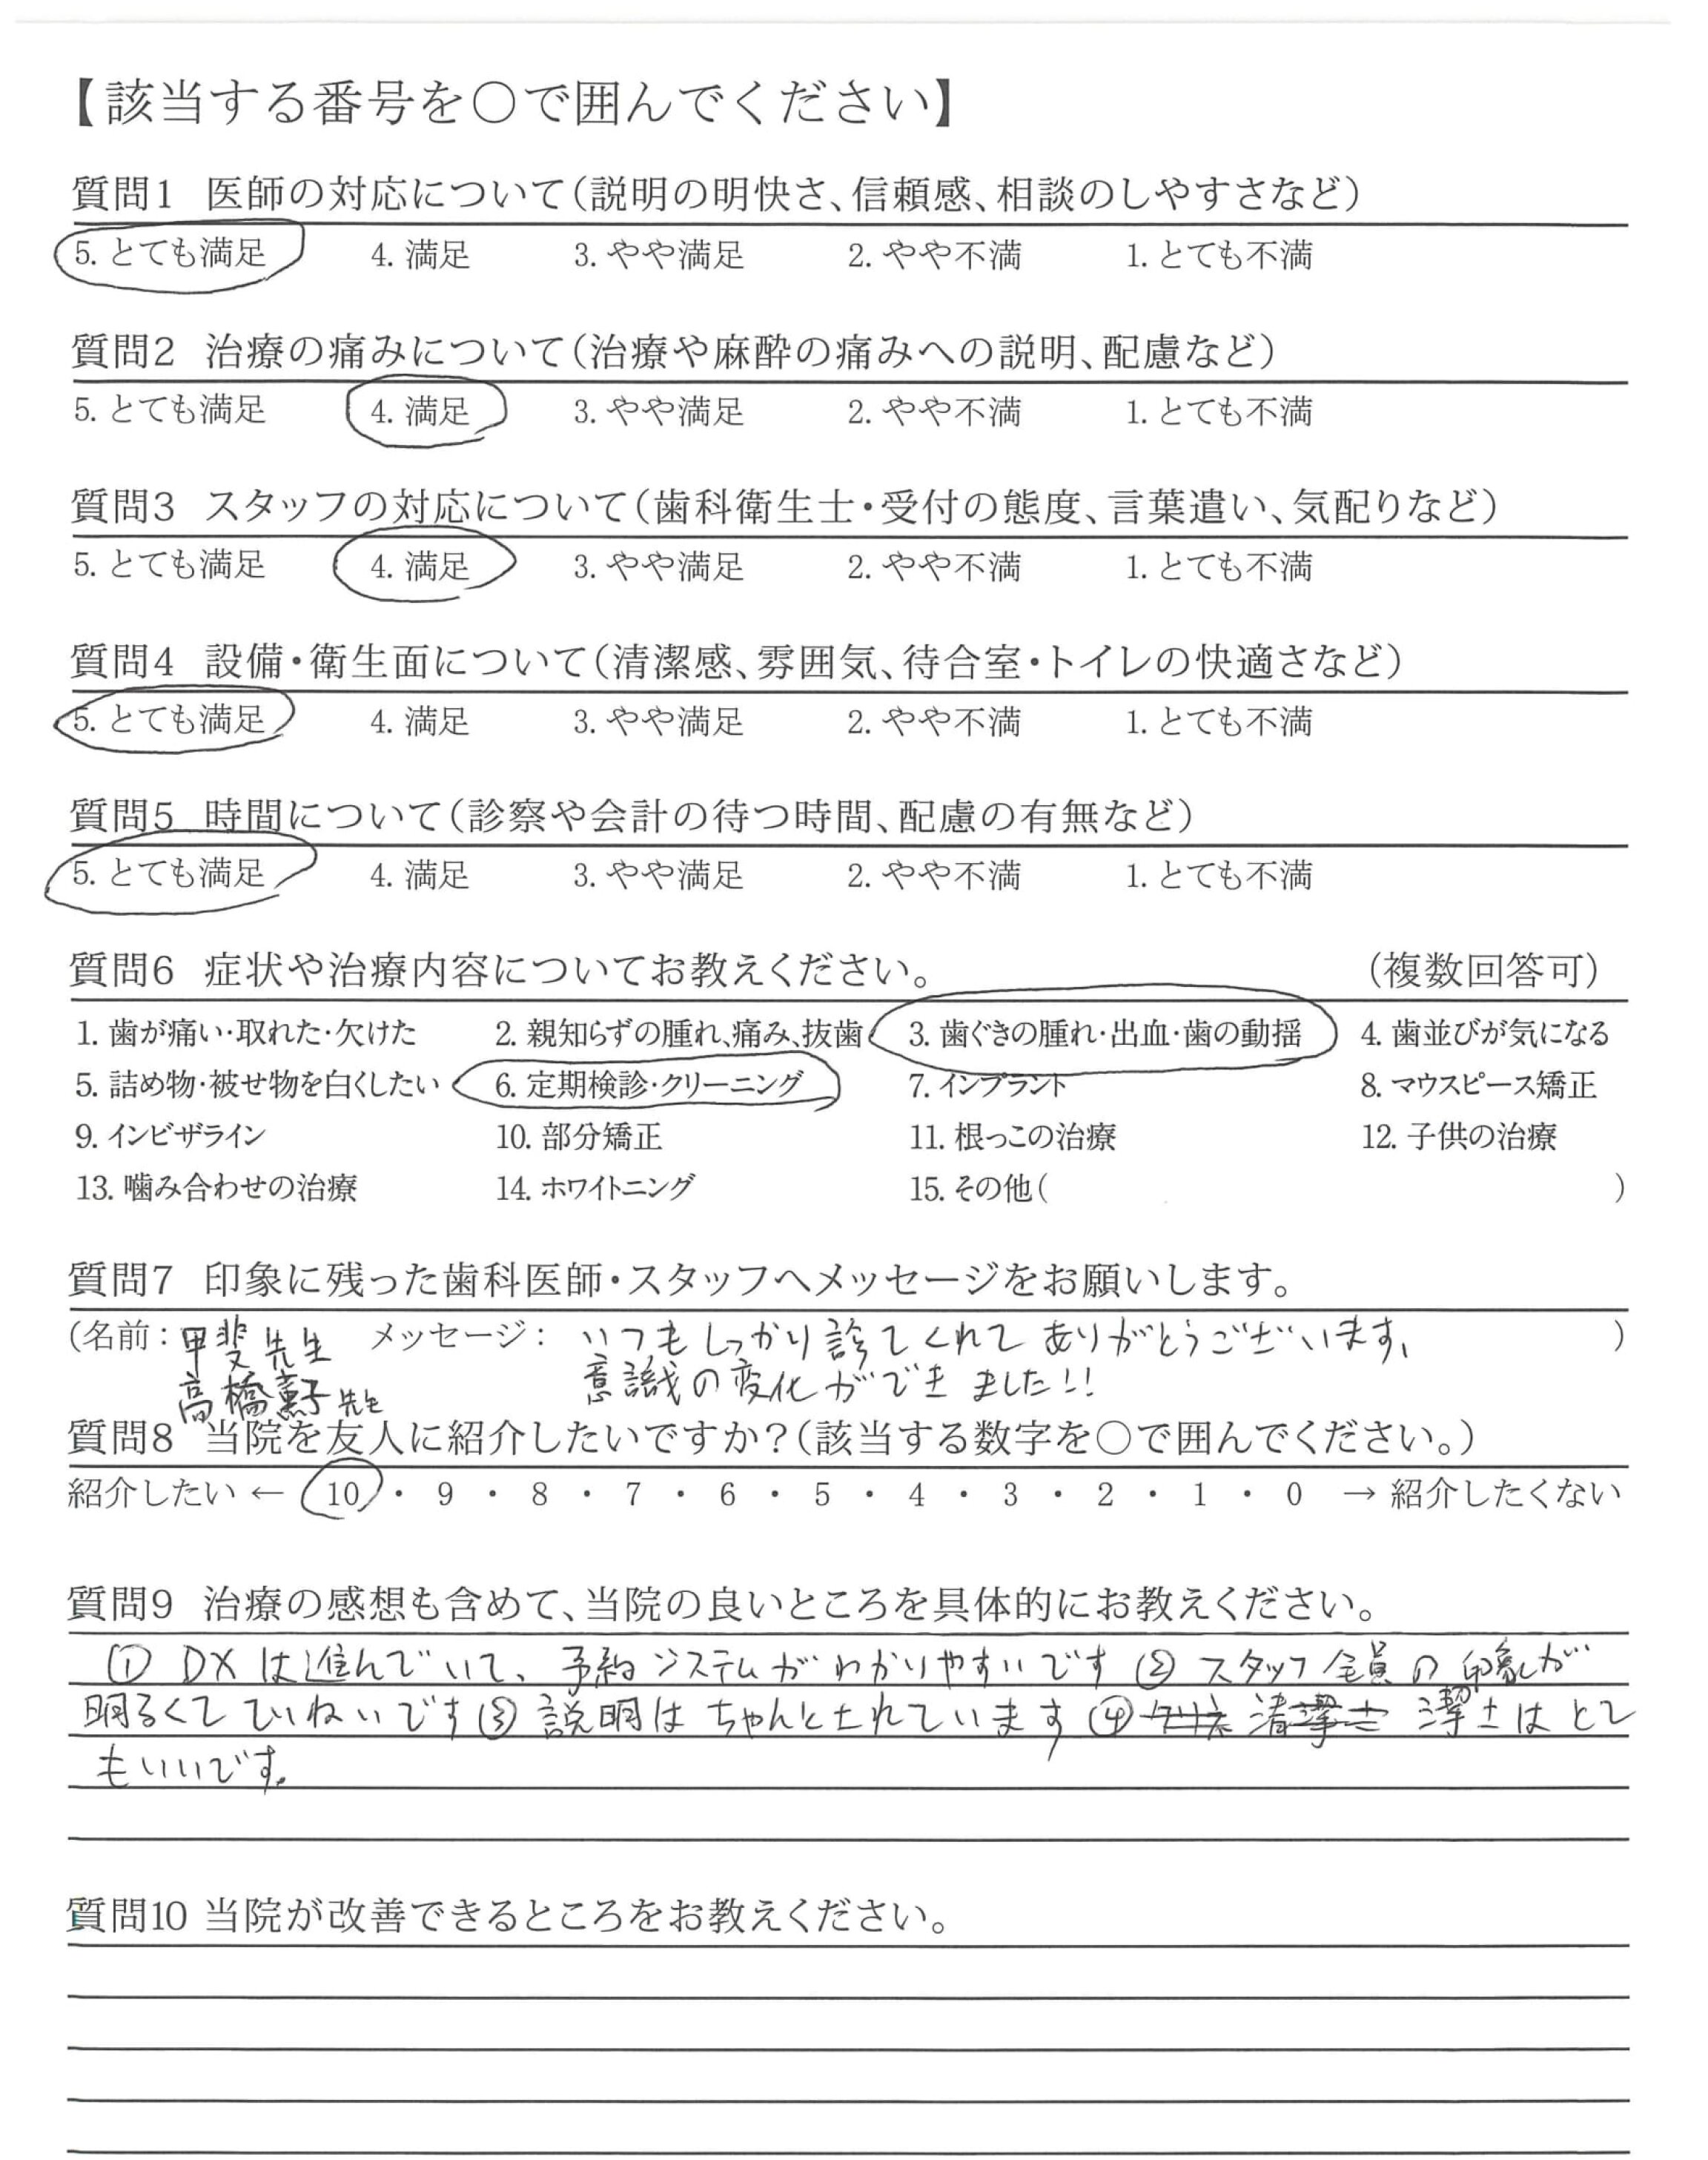 【該当する番号を○で囲んでください】
質問1 医師の対応について(説明の明快さ、信頼感、相談のしやすさなど)
5. とても満足 4. 満足 3. やや満足 2. やや不満 1. とても不満
質問2 治療の痛みについて(治療や麻酔の痛みへの説明、配慮など)
5. とても満足 4. 満足 3. やや満足 2. やや不満 1. とても不満
質問3 スタッフの対応について(歯科衛生士・受付の態度、言葉遣い、気配りなど)
5. とても満足 4. 満足 3. やや満足 2. やや不満 1. とても不満
質問4 設備・衛生面について(清潔感、雰囲気、待合室・トイレの快適さなど)
5. とても満足 4. 満足 3. やや満足 2. やや不満 1. とても不満
質問5 時間について(診察や会計の待つ時間、配慮の有無など)
5. とても満足 4. 満足 3. やや満足 2. やや不満 1. とても不満
質問6 症状や治療内容についてお教えください。 (複数回答可)
1. 歯が痛い・取れた・欠けた 2. 親知らずの腫れ、痛み、抜歯 3. 歯ぐきの腫れ・出血・歯の動揺 4. 歯並びが気になる
5. 詰め物・被せ物を白くしたい 6. 定期検診・クリーニング 7. インプラント 8. マウスピース矯正
9. インビザライン 10. 部分矯正 11. 根っこの治療 12. 子供の治療
13. 噛み合わせの治療 14. ホワイトニング 15. その他( )
質問7 印象に残った歯科医師・スタッフへメッセージをお願いします。
(名前: 甲斐先生 メッセージ: いつもしっかり診てくれてありがとうございます、 )
高橋薫子先生 意識の変化ができました!!
質問8 当院を友人に紹介したいですか?(該当する数字を○で囲んでください。)
紹介したい ← 10 ・ 9 ・ 8 ・ 7 ・ 6 ・ 5 ・ 4 ・ 3 ・ 2 ・ 1 ・ 0 → 紹介したくない
質問9 治療の感想も含めて、当院の良いところを具体的にお教えください。
① DXは進んでいて、予約システムがわかりやすいです ② スタッフ全員の印象が
明るくてていねいです ③ 説明はちゃんとされています ④ 清 潔士はとて
もいいです。
質問10 当院が改善できるところをお教えください。